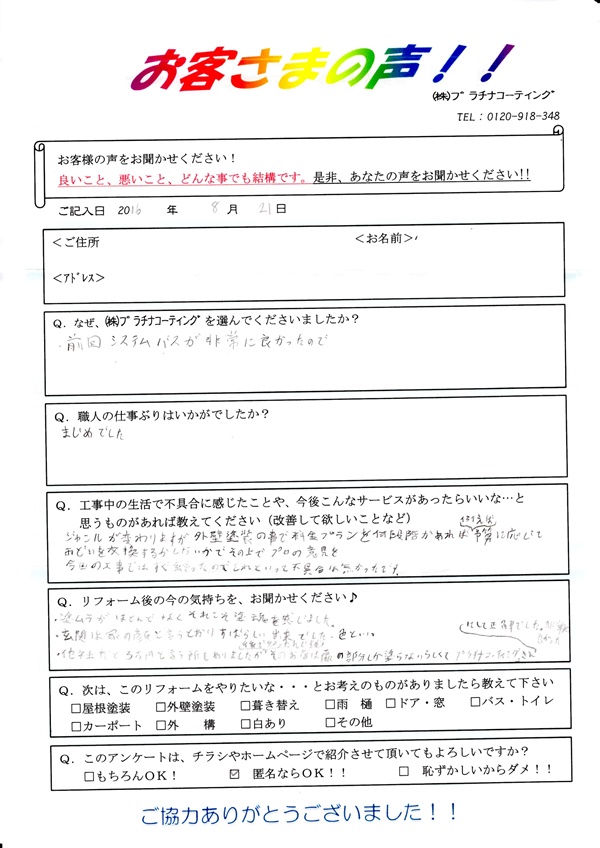 お客さまの声！！
㈱プラチナコーティング
TEL：0120-918-348
お客様の声をお聞かせください！
良いこと、悪いこと、どんな事でも結構です。是非、あなたの声をお聞かせください!!
ご記入日 2016 年 8 月 21 日
＜ご住所 ＜お名前＞
＜アドレス＞
Q．なぜ、㈱プラチナコーティングを選んでくださいましたか？
・前回システムバスが非常に良かったので
Q．職人の仕事ぶりはいかがでしたか？
まじめでした
Q．工事中の生活で不具合に感じたことや、今後こんなサービスがあったらいいな…と
思うものがあれば教えてください（改善して欲しいことなど）
ジャンルが変わりますが外壁塗装の事で料金プランを何段階かあれば 例えば 予算に応じて
雨どいを交換するかしないかでその上でプロの意見を
今回の工事ではすぐ終わったのでこれといって不具合は無かったです。
Q．リフォーム後の今の気持ちを、お聞かせください♪
・塗ムラがほとんどなくそれこそ塗魂を感じました。
・玄関は家の顔と言うとおりすばらしい出来でした。色といい
・他社だと
プラチナコーティングさん
にして正解でした。
Q．次は、このリフォームをやりたいな・・・とお考えのものがありましたら教えて下さい
□屋根塗装 □外壁塗装 □葺き替え □雨 樋 □ドア・窓 □バス・トイレ
□カーポート □外 構 □白あり □その他
Q．このアンケートは、チラシやホームページで紹介させて頂いてもよろしいですか？
□もちろんOK！ ☑ 匿名ならOK！！ □ 恥ずかしいからダメ！！
ご協力ありがとうございました！！